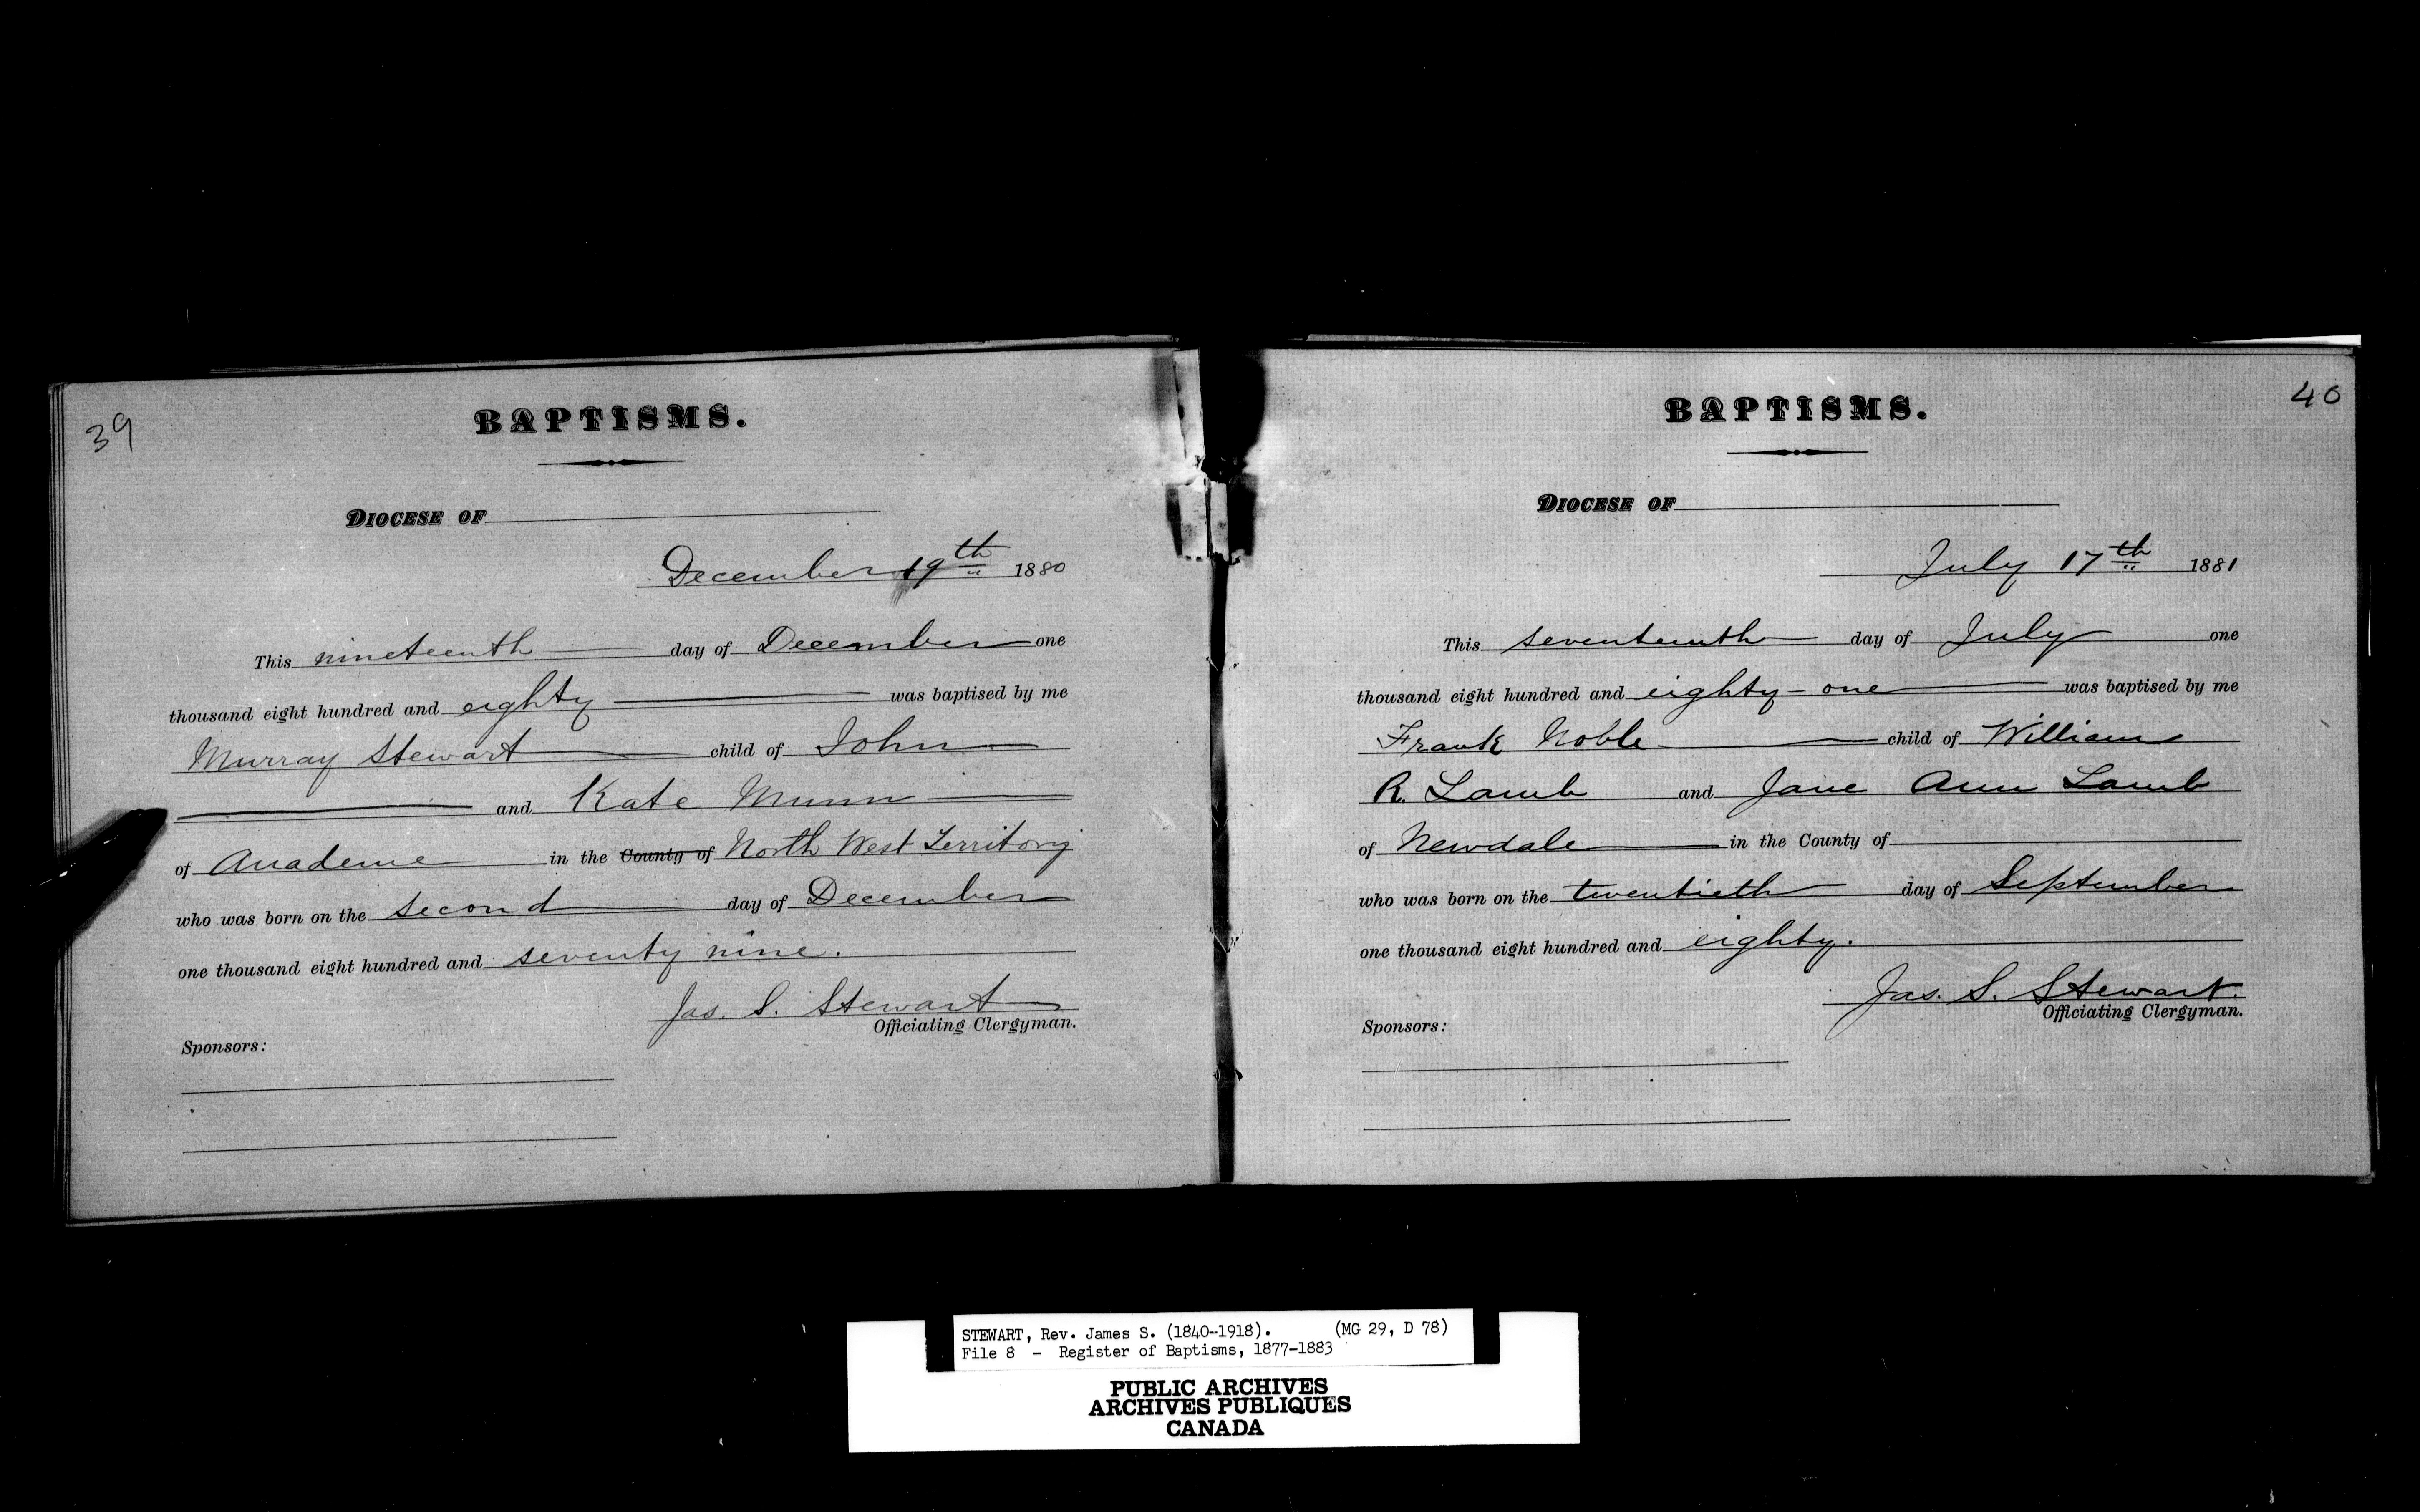 39
BAPTISMS.
DIOCESE OF
December 19th 1880
This nineteenth day of December one
thousand eight hundred and eighty was baptised by me
Murray Stewart child of John
and Kate Munn
of Anademe in the County of North West Territory
who was born on the second day of December
one thousand eight hundred and seventy nine.
Jas. S. Stewart
Officiating Clergyman.
Sponsors:
40
BAPTISMS.
DIOCESE OF
July 17th 1881
This seventeenth day of July one
thousand eight hundred and eighty-one was baptised by me
Frank Noble child of William
R. Lamb and Jane Ann Lamb
of Newdale in the County of
who was born on the twentieth day of September
one thousand eight hundred and eighty.
Jas. S. Stewart.
Officiating Clergyman.
Sponsors:
STEWART, Rev. James S. (1840-1918). (MG 29, D 78)
File 8 - Register of Baptisms, 1877-1883
PUBLIC ARCHIVES
ARCHIVES PUBLIQUES
CANADA